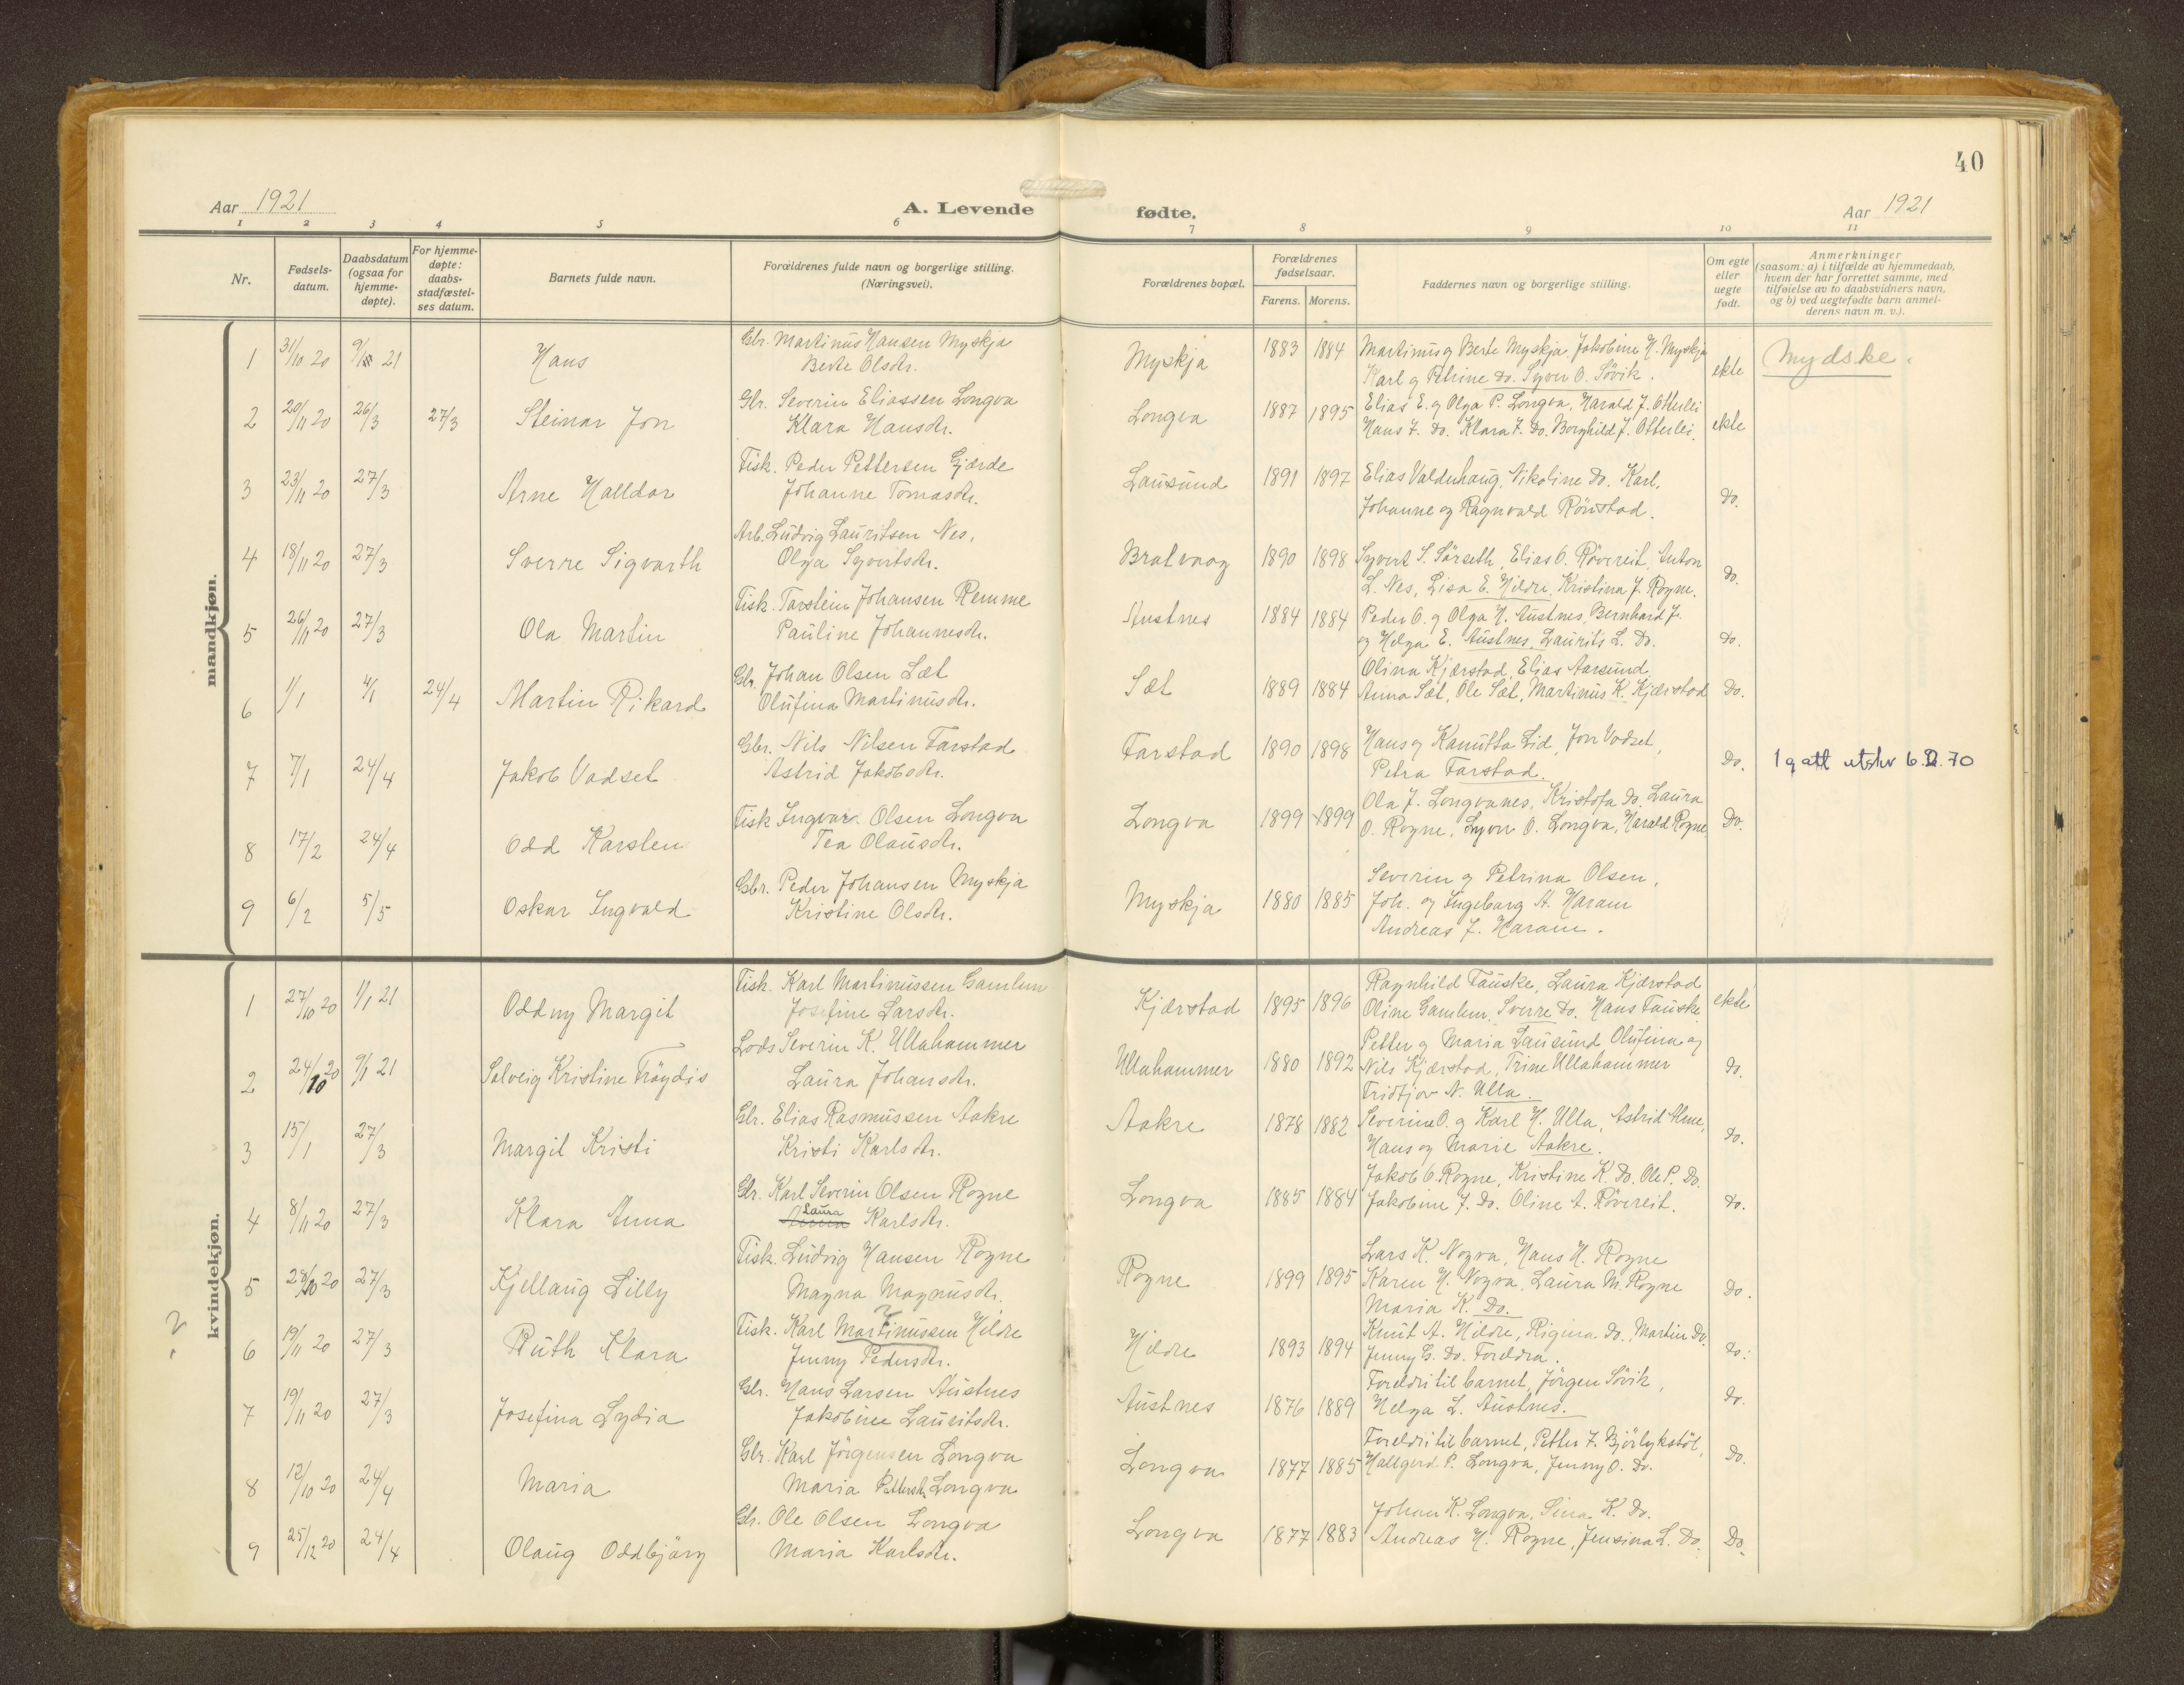 40
Aar 1921
A. Levende
fødte.
Aar 1921
1 2 3 4 5 6 7 8 9 10 11
Nr.
Fødsels-
datum.
Daabsdatum
(ogsaa for
hjemme-
døpte).
For hjemme-
døpte:
daabs-
stadfæstel-
ses datum.
Barnets fulde navn.
Forældrenes fulde navn og borgerlige stilling.
(Næringsvei).
Forældrenes bopæl.
Forældrenes
fødselsaar.
Farens. Morens.
Faddernes navn og borgerlige stilling.
Om egte
eller
uegte
født.
Anmerkninger
(saasom: a) i tilfælde av hjemmedaab,
hvem der har forrettet samme, med
tilføielse av to daabsvidners navn,
og b) ved uegtefødte barn anmel-
derens navn m. v.).
mandkjøn.
1 31/10 20 9/1 21 Hans
Gbr. Martinus Hansen Myskja
Berte Olsdtr.
Myskja 1883 1884
Martinus og Berte Myskja, Jakobine H. Myskja
Karl og Petrine Do. Syver O. Søvik.
ekte
Mydske.
2 20/11 20 26/3 27/3 Steinar Jon
Gbr. Severin Eliassen Longva
Klara Hansdtr.
Longva 1887 1895
Elias E. og Olga P. Longva, Harald J. Otterlei
Hans J. Do. Klara J. Do. Borghild J. Otterlei.
ekte
3 23/11 20 27/3 Arne Halldor
Fisk. Peder Pettersen Gjærde
Johanne Tomasdtr.
Lausund 1891 1897
Elias Valderhaug, Nikoline Do. Karl,
Johanne og Ragnvald Rönstad.
Do.
4 18/11 20 27/3 Sverre Sigvarth
Arb. Ludvig Lauritsen Nes,
Olga Syvertsdtr.
Bratvaag 1890 1898
Syvert S. Sörseth, Elias O. Rövereit, Anton
L. Nes, Lisa E. Hildre, Kristina J. Rogne.
Do.
5 26/11 20 27/3 Ola Martin
Fisk. Torstein Johansen Remme
Pauline Johannesdtr.
Austnes 1884 1884
Peder O. og Olga H. Austnes, Bernhard J.
og Helga E. Austnes, Laurits L. Do.
Do.
6 1/1 4/1 24/4 Martin Rikard
Gbr. Johan Olsen Sæt
Olufina Martinusdtr.
Sæt 1889 1884
Olina Kjærstad, Elias Aarsund
Anna Sæt, Ole Sæt, Martinus K. Kjærstad
Do.
7 7/1 24/4 Jakob Vadset
Gbr. Nils Nilsen Farstad
Astrid Jakobsdtr.
Farstad 1890 1898
Hans og Kanutta Lid, Jon Vadset,
Petra Farstad.
Do.
1 g att utskr 6.2.70
8 17/2 24/4 Odd Karsten
Fisk Ingvar Olsen Longva
Tea Olausdtr.
Longva 1899 1899
Ola J. Longvanes, Kristofa Do. Laura
O. Rogne, Syver O. Longva, Harald Rogne
Do.
9 6/2 5/5 Oskar Ingvald
Gbr. Peder Johansen Myskja
Kristine Olsdtr.
Myskja 1880 1885
Severin og Petrina Olsen,
Joh. og Ingeborg A. Haram
Andreas J. Haram.
kvindekjøn.
1 27/10 20 1/1 21 Oddny Margit
Fisk. Karl Martinussen Gamlem
Josefine Larsdtr.
Kjærstad 1895 1896
Ragnhild Fauske, Laura Kjærstad
Oline Gamlem, Sverre Do. Hans Fauske
ekte
2 24/10 20 9/1 21 Solveig Kristine Fröydis
Lods Severin K. Ullahammer
Laura Johansdtr.
Ullahammer 1880 1892
Petter og Maria Lausund Olufina og
Nils Kjærstad, Trine Ullahammer
Fridtjov N. Ulla.
Do.
3 15/1 27/3 Margit Kristi
Gbr. Elias Rasmussen Aakre
Kristi Karlsdtr.
Aakre 1878 1882
Severine O. og Karl H. Ulla, Astrid Alme,
Hans og Marie Aakre.
Do.
4 8/11 20 27/3 Klara Anna
Gbr. Karl Severin Olsen Rogne
Laura
Anna Karlsdtr.
Longva 1885 1884
Jakob O. Rogne, Kristine K. Do. Ole P. Do.
Jakobine J. Do. Oline A. Rövereit.
Do.
5 28/10 20 27/3 Kjellaug Lilly
Fisk. Ludvig Hansen Rogne
Magna Magnusdtr.
Rogne 1899 1895
Lars K. Nogva, Hans H. Rogne
Karen H. Nogva, Laura M. Rogne
Maria K. Do.
Do.
?
6 19/11 20 27/3 Ruth Klara
Fisk. Karl Martinussen Hildre
?
Jenny Pedersdtr.
Hildre 1893 1894
Knut A. Hildre, Rigina Do. Martin Do.
Jenny G. Do. Foreldra.
Do.
7 19/11 20 27/3 Josefina Lydia
Gbr. Hans Larsen Austnes
Jakobine Lauritsdtr.
Austnes 1876 1889
Foreldri til barnet, Jörgen Sövik,
Helga L. Austnes.
Do.
8 12/10 20 24/4 Maria
Gbr. Karl Jörgensen Longva
Maria Pettersdtr. Longva
Longva 1877 1885
Foreldri til barnet, Petter J. Björlykstöl,
Hallgerd P. Longva, Jenny O. Do.
Do.
9 25/12 20 24/4 Olaug Oddbjörg
Gbr. Ole Olsen Longva
Maria Karlsdtr.
Longva 1877 1883
Johan K. Longva, Sina K. Do.
Andreas H. Rogne, Jensina L. Do.
Do.